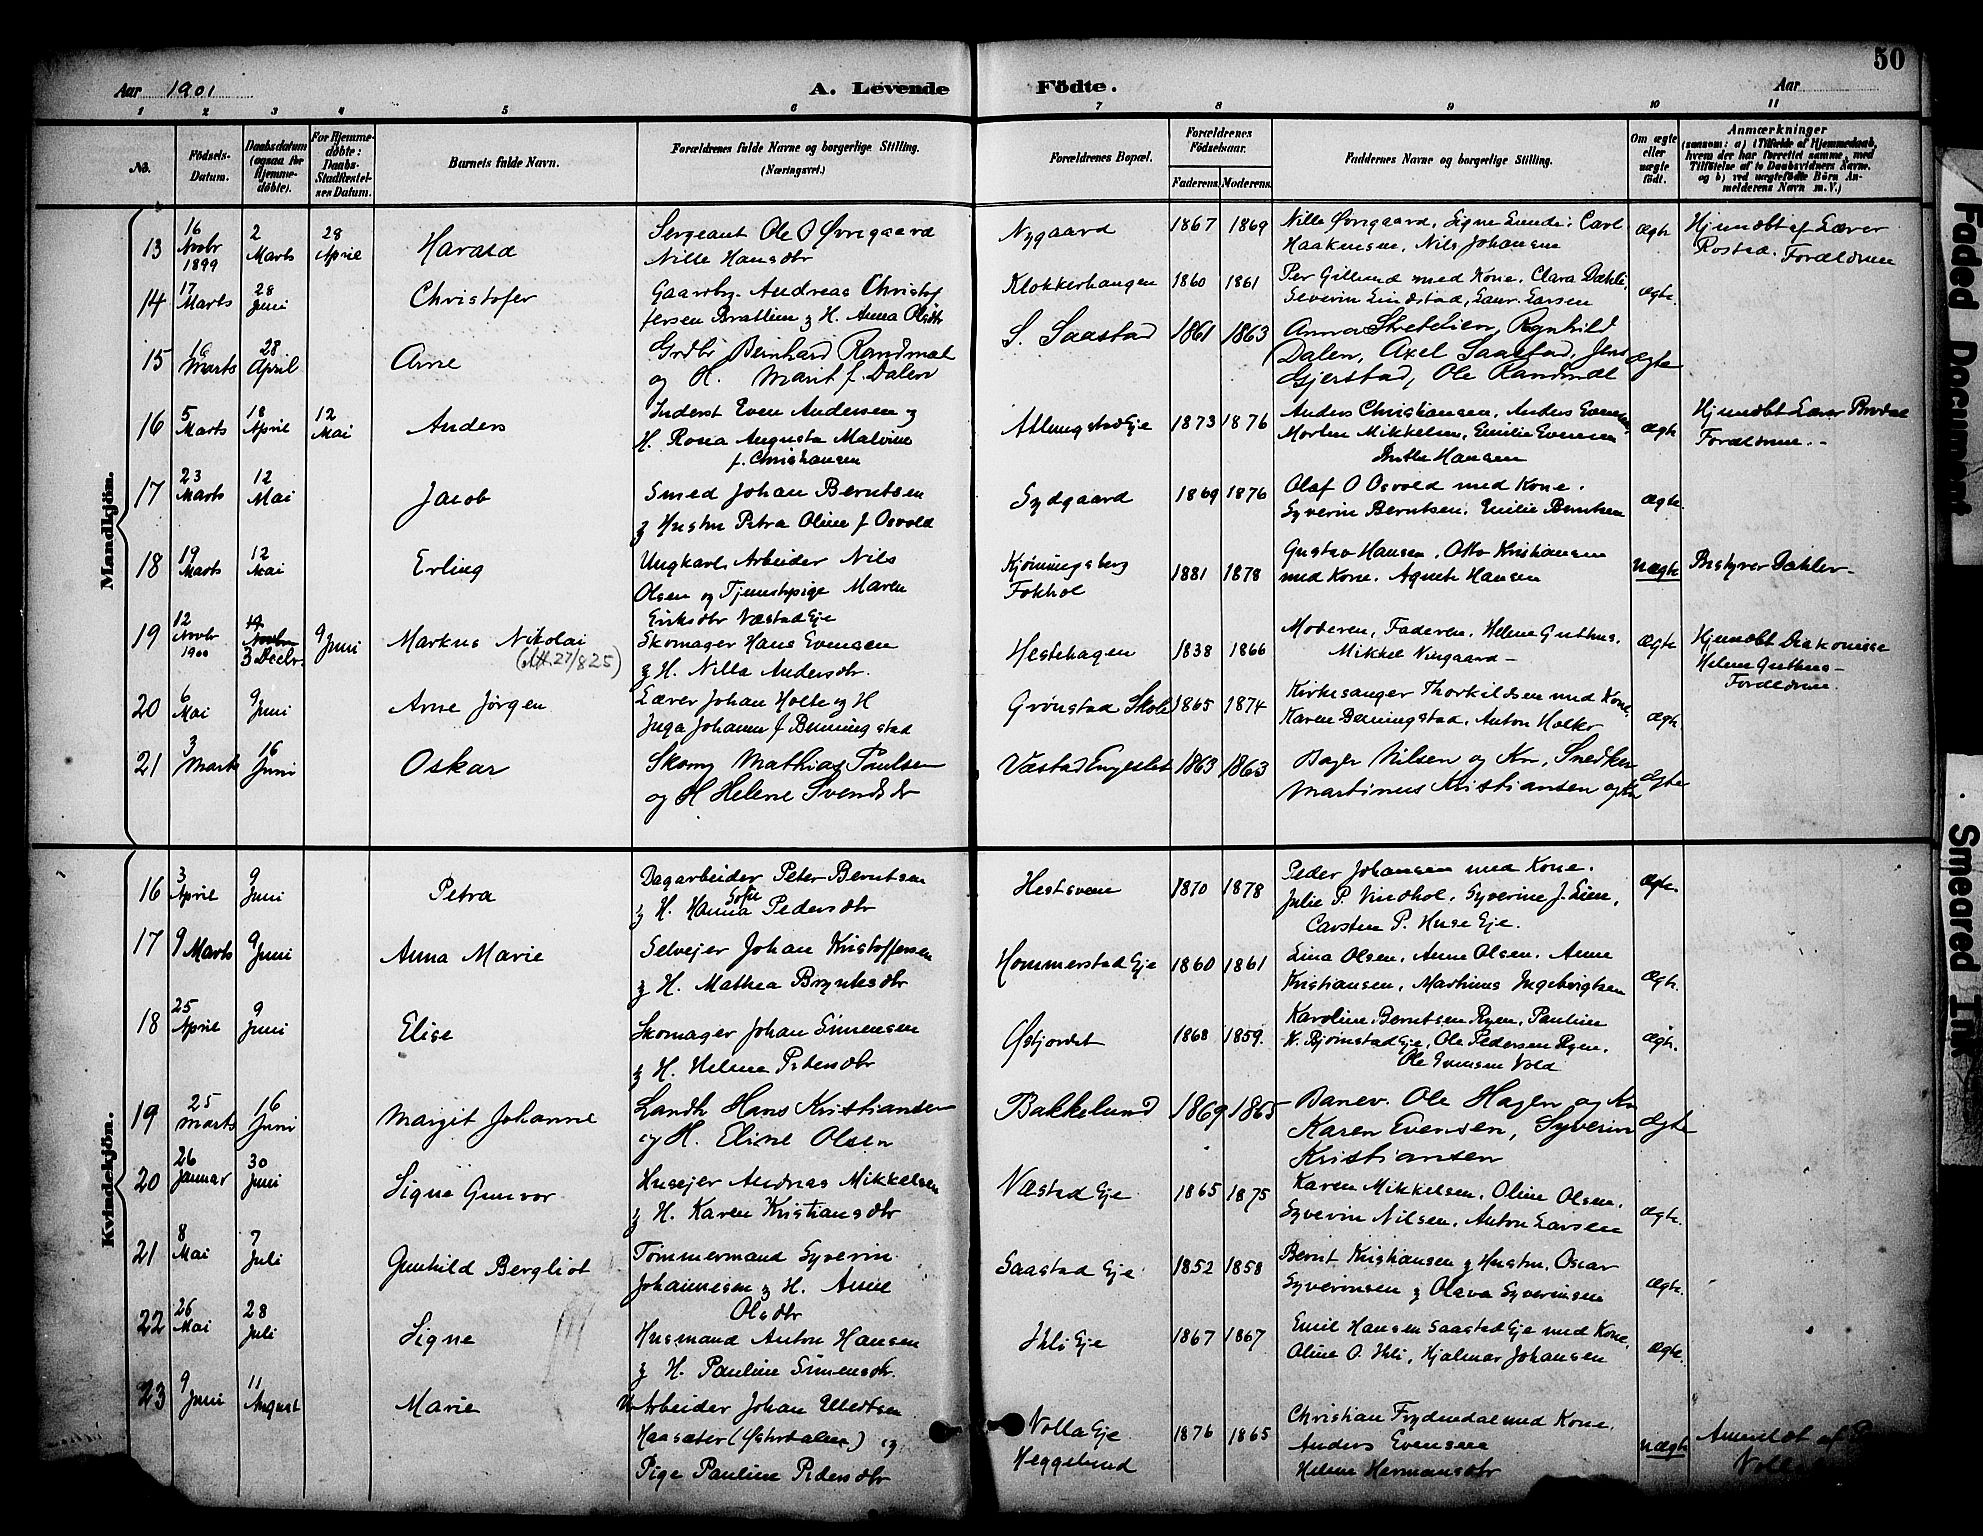 50
Aar 1901
A. Levende Födte.
Aar
1 2 3 4 5 6 7 8 9 10 11
No.
Födsels-Datum.
Daabsdatum (ogsaa for Hjemmedöbte).
For Hjemmedøbte: Daabs-Stadfæstelses Datum.
Barnets fulde Navn.
Forældrenes fulde Navne og borgerlige Stilling. (Næringsvei.)
Forældrenes Bopæl.
Forældrenes Födselsaar.
Faderens. Moderens.
Faddernes Navne og borgerlige Stilling.
Om ægte eller uægte födt.
Anmærkninger
(saasom: a) i Tilfælde af Hjemmedaab, hvem der har forrettet samme, med Tilföielse af to Daabsvidners Navne, og b) ved uægtefödte Börn Anmelderens Navn m. V.)
Mandkjön.
13 16 Novbr 1899 2 Marts 28 April Harald Sergeant Ole O Øvregaard
Nille Hansdtr Nygaard 1867 1869 Nille Øvregaard, Signe Lunde, Carl
Haakensen, Nils Johansen ægte Hjemdøbt af Lærer
Rostad. Forældrene
14 17 Marts 28 Juni Christofer Gaardbr. Andreas Christof
fersen Bratlien & H. Anna Olsdtr Klokkerhaugen 1860 1861 Per Gillund med Kone, Clara Dæhli,
Severin Lindstad, Laur. Larsen ægte.
15 Marts 28 April Arne Grdbr Bernhard Randmæl
og H. Marit f. Dalen S. Saastad 1861 1863 Anna Stretelien, Ragnhild
Dalen, Axel Saastad, Jens
Gjerstad, Ole Randmæl ægte
16 5 Marts 18 April 12 Mai Anders Inderst Even Andersen &
H. Rosia Augusta Malvine
f. Christiansen Atlungstad Eje 1873 1876 Anders Christiansen, Anders Evensen,
Morten Mikkelsen, Emilie Evensen
Hansen ægte Hjemdøbt Lærer Brodal
Forældrene. -
17 23 Marts 12 Mai Jacob Smed Johan Berntsen
& Hustru Petra Oline f Osvold Sydgaard 1869 1876 Olaf O Osvold med Kone.
Syverin Berntsen. Emilie Berntsen ægte.
18 19 Marts 12 Mai Erling Ungkarl Arbeider Nils
Olsen og Tjenestepige Maren
Eriksdtr Væstad Eje Kjønningsberg
Fokhol 1881 1878 Gustav Hansen, Otto Kristiansen
med Kone. Agnethe Hansen uægte Bestyrer Dæhlen
19 12 Novbr 1900 19 Novbr 3 Decbr. 9 Juni Markus Nikolai
(dH.27/825) Skomager Hans Evensen
& H. Nilla Andersdtr. Hestehagen 1838 1866 Moderen, Faderen, Helene Guthus.
Mikkel Vingaard - ægte Hjemdøbt Diakonisse
Helene Guthus -
Forældrene.
20 6 Mai 9 Juni Arne Jørgen Lærer Johan Holte og H
Inga Johanne f Benningstad Grønstad Skole 1865 1874 Kirkesanger Thorkildsen med Kone,
Karen Benningstad, Anton Holte ægte
21 3 Marts 16 Juni Oskar Skom Mathias Paulsen
og H Helene Svendsdr Væstad Engeslet 1863 1863 Bager Nilsen og Kn, Snedker
Martinus Kristiansen og Kn ægte
Kvindekjön.
16 3 April 9 Juni Petra Dagarbeider Peter Berntsen
& H. Hanna Sofie Pedersdtr Hestsveen 1870 1878 Peder Johansen med Kone.
Julie P. Vindhol, Syverine J. Lien,
Carsten P. Huse Eje. ægte.
17 9 Marts 9 Juni Anna Marie Selvejer Johan Kristoffersen
& H. Mathea Bryntesdtr Hommerstad Eje 1860 1861 Lina Olsen, Anne Olsen, Anne
Kristiansen, Mathinus Ingebrigtsen ægte.
18 25 April 9 Juni Elise Skomager Johan Simensen
& H. Helene Pedersdtr Østjordet 1868 1859. Karoline Berntsen Ryen, Pauline
K. Bjørnstad Eje, Ole Pedersen Ryen,
Ole Evensen Vold ægte.
19 25 Marts 16 Juni Margit Johanne Landh Hans Kristiansen
og H. Eline Olsen Bakkelund 1869 1865 Banev. Ole Hagen og Kn
Karen Evensen, Syverin
Kristiansen ægte
20 26 Januar 30 Juni Signe Gunvor Husejer Andreas Mikkelsen
& H. Karen Kristiansdtr Væstad Eje 1865 1875 Karen Mikkelsen, Oline Olsen,
Syverin Nilsen, Anton Larsen ægte.
21 8 Mai 7 Juli Gunhild Bergliot Tømmermand Syverin
Johannesen & H. Anne
Olsdtr Saastad Eje 1852 1858 Bernt Kristiansen & Hustru, Oscar
Syverinsen & Olava Syverinsen ægte.
22 26 Mai 28 Juli Signe Husmand Anton Hansen
& H. Pauline Simensdtr. Ihli Eje 1867 1867 Emil Hansen Saastad Eje med Kone,
Oline O. Ihli, Hjalmar Johansen ægte.
23 9 Juni 11 August Marie Arbeider Johan
Haasæter (Østerdalen) og
Pige Pauline Pedersdtr Volla Eje
Heggelund 1876 1865 Christian Frydendal med Kone.
Anders Evensen
Helene Hermansdtr uægte Anmeldt af
Faded Document
Smeared Ink